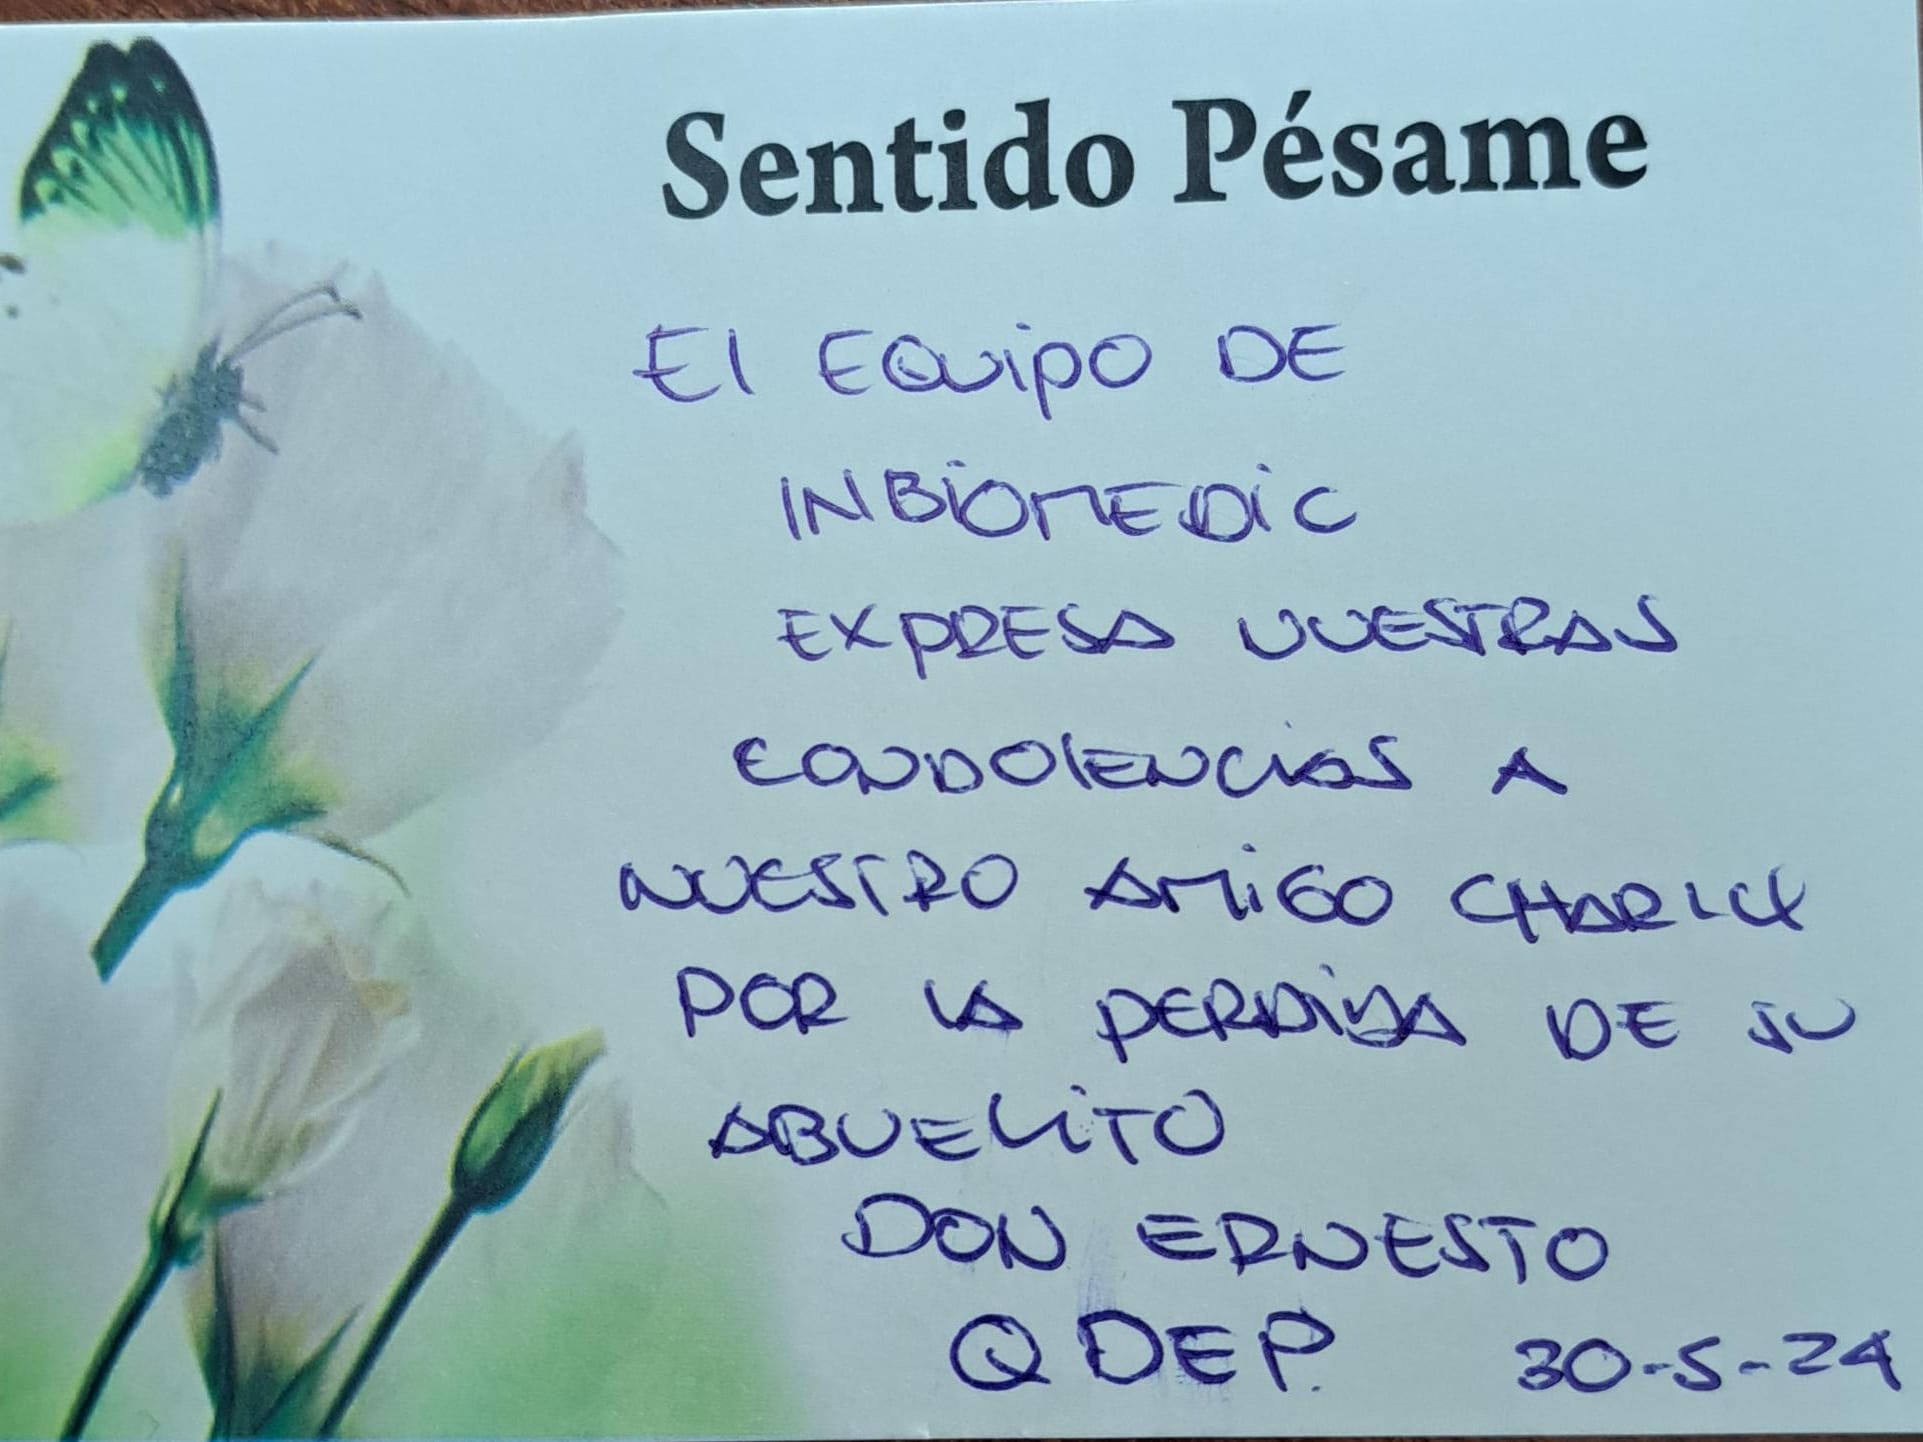 Sentido Pésame
El EQUipO DE
INBiOMEDiC
EXPRESA NUESTRAS
CONDOlENCiAS A
NUESTRO AMiGO CHARLY
POR LA PERDiDA DE SU
ABUELiTO
DON ERNESTO
QDEP. 30-5-24